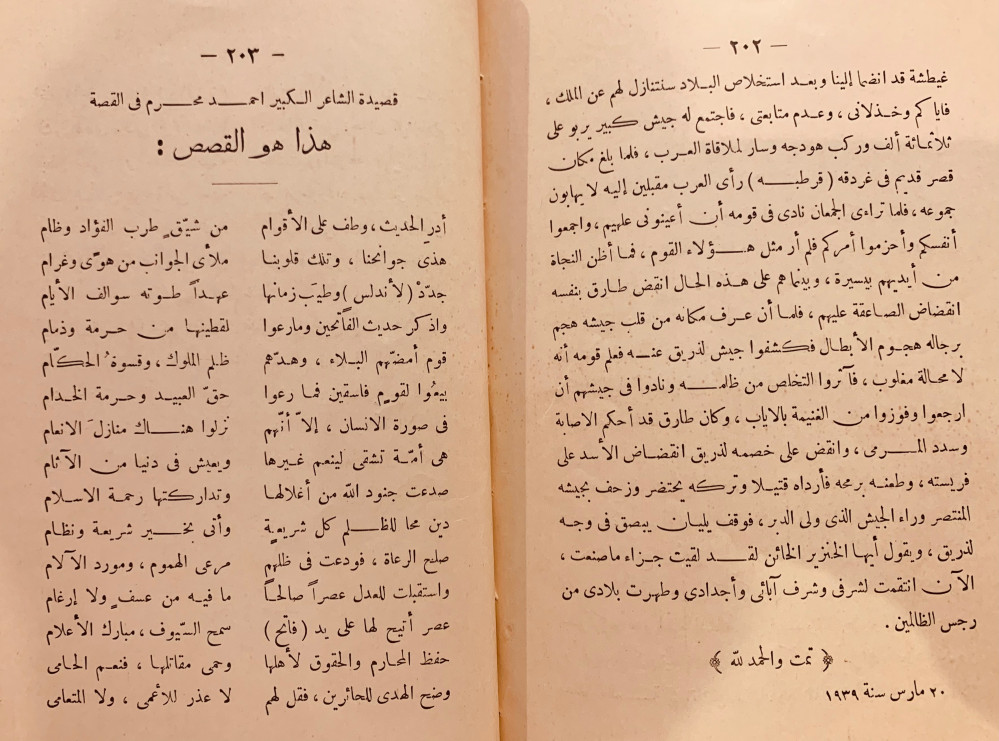 — ٢٠٢ —
غيطشة قد انضما إلينا وبعد استخلاص البلاد سنتنازل لهم عن الملك ،
فايا كم وخذلانى ، وعدم متابعتى ، فاجتمع له جيش كبير يربو على
ثلاثمائة ألف وركب هودجه وسار لملاقاة العرب ، فلما بلغ مكان
قصر قديم فى غردقه ( قرطبه ) رأى العرب مقبلين إليه لا يهابون
جموعه ، فلما تراءى الجمعان نادى فى قومه أن أعينونى عليهم ، واجمعوا
أنفسكم وأحزموا أمركم فلم أر مثل هؤلاء القوم ، فما أظن النجاة
من أيديهم بيسيرة ، وبينما هم على هذه الحال انقض طارق بنفسه
انقضاض الصاعقة عليهم ، فلما أن عرف مكانه من قلب جيشه هجم
برجاله هجوم الأبطال فكشفوا جيش لذريق عنه فعلم قومه أنه
لا محالة مغلوب ، فآثروا التخلص من ظلمه ونادوا فى جيشهم أن
ارجعوا وفوزوا من الغنيمة بالاياب ، وكان طارق قد أحكم الاصابة
وسدد المرمى ، وانقض على خصمه لذريق انقضاض الأسد على
فريسته ، وطعنه برمحه فأرداه قتيلا وتركه يحتضر وزحف بجيشه
المنتصر وراء الجيش الذى ولى الدبر ، فوقف يليان يبصق فى وجه
لذريق ، ويقول أيها الخنزير الخائن لقد لقيت جزاء ماصنعت ،
الآن انتقمت لشرفى وشرف آبائى وأجدادى وطهرت بلادى من
رجس الظالمين .
﴿ تمت والحمد لله ﴾
٢٠ مارس سنة ١٩٣٩
— ٢٠٣ —
قصيدة الشاعر الكبير احمد محرم فى القصة
هذا هو القصص :
أدِرِ الحديث ، وطف على الأقوام من شيّقٍ طرب الفؤاد وظام
هذى جوانحنا ، وتلك قلوبنا ملأى الجوانب من هوًى وغرام
جدّدْ ( لأندلس ) وطيبَ زمانها عهداً طوته سوالف الأيام
واذكر حديث الفاتحين ومارعوا لقطينها من حرمة وذمام
قوم أمضّهم البلاء ، وهدّهم ظلم الملوك ، وقسوة الحكّام
بيعُوا لقومٍ فاسقين فما رعوا حقّ العبيد وحرمة الخدام
فى صورة الانسان ، إلاّ أنّهم نزلوا هناك منازلَ الانعام
هى أمّة تشقى لينعم غيرها ويعيش فى دنيا من الآثام
صدعت جنود الله من أغلالها وتداركتها رحمة الاسلام
دين محا للظلم كل شريعةٍ وأتى بخير شريعة ونظام
صلح الرعاة ، فودعت فى ظلهم مرعى الهموم ، ومورد الآلام
واستقبلت للعدل عصراً صالحاً ما فيه من عسفٍ ولا إرغام
عصر أتيح لها على يد ( فاتح ) سمح السّيوف ، مبارك الأعلام
حفظ المحارم والحقوق لأهلها وحمى مقاتلها ، فنعم الحامى
وضح الهدى للحائرين ، فقل لهم لا عذر للأعمى ، ولا المتعامى